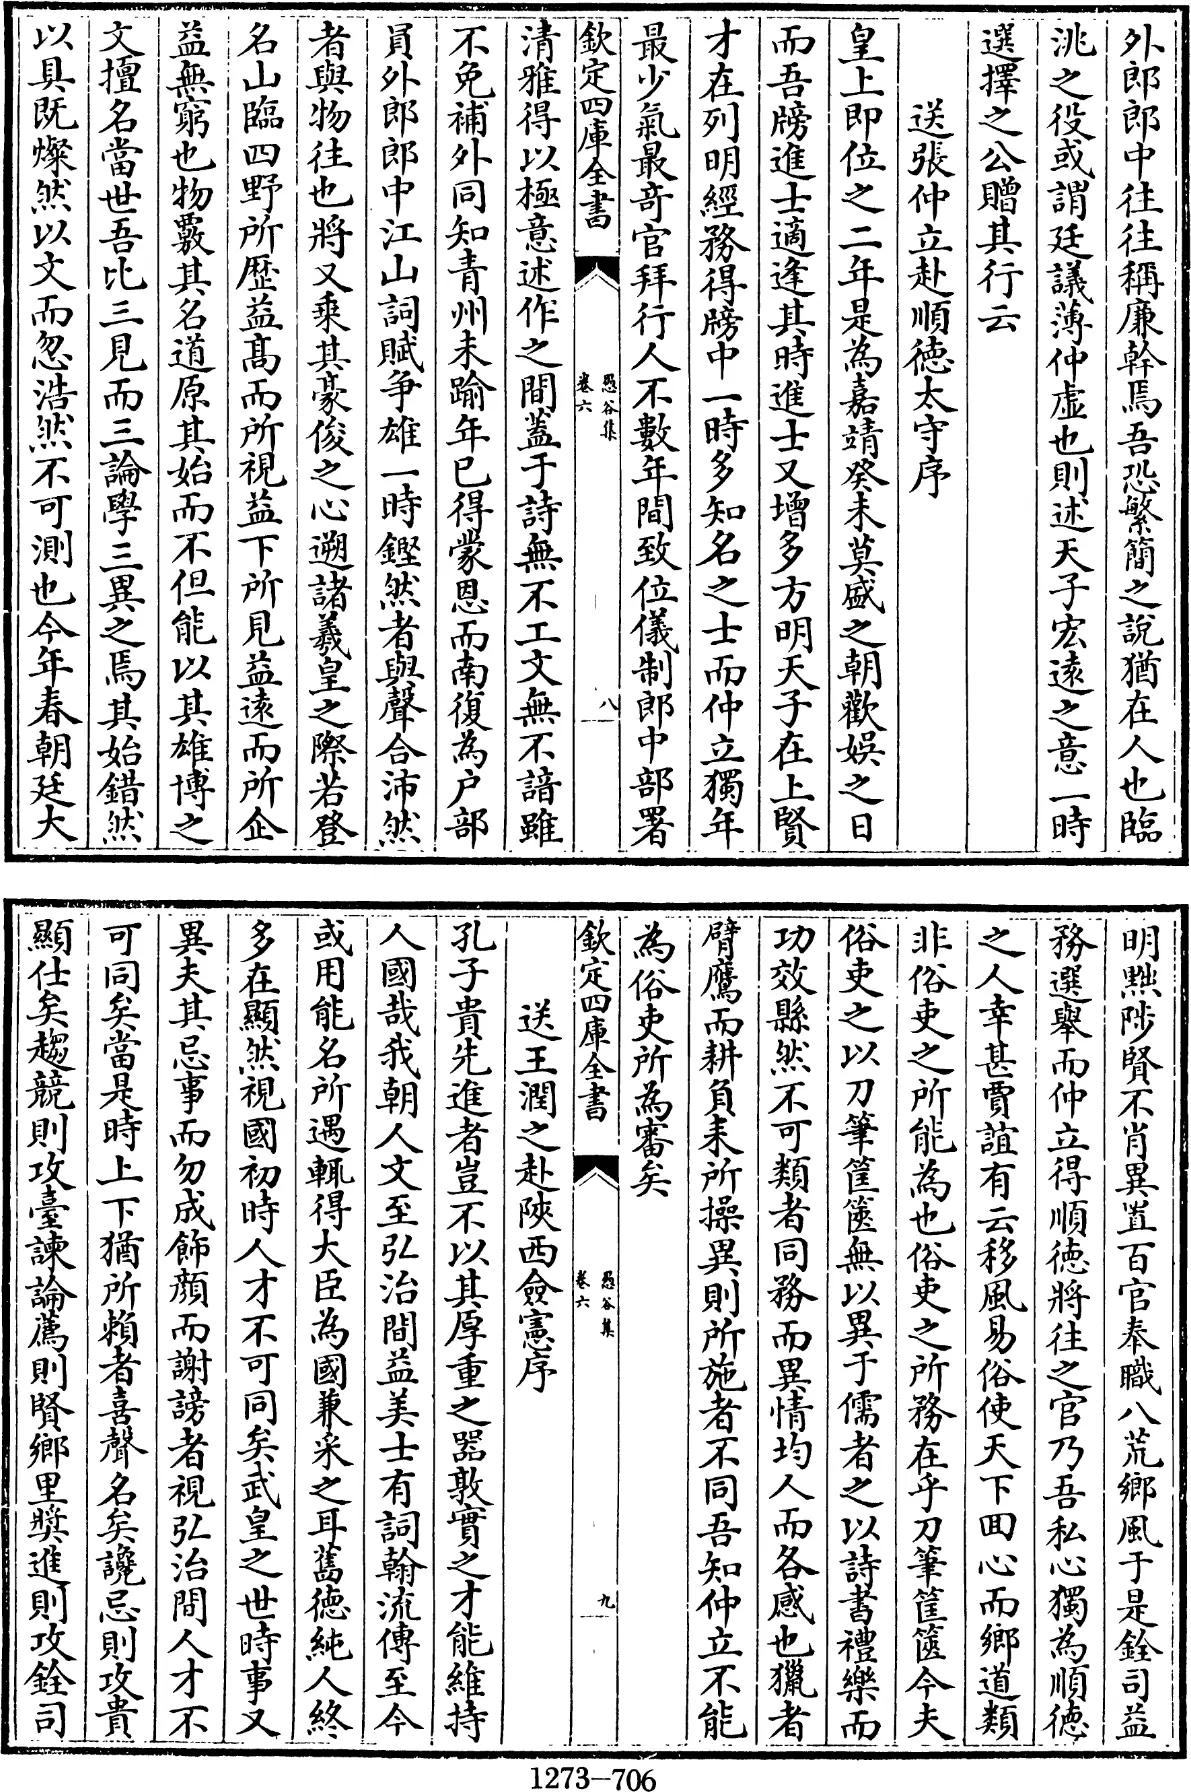 外郎郎中往往稱廉幹焉吾恐繁簡之說猶在人也臨
洮之役或謂廷議薄仲虛也則述天子宏遠之意一時
選擇之公贈其行云
送張仲立赴順德太守序
皇上即位之二年是為嘉靖癸未莫盛之朝歡娛之日
而吾牓進士適逢其時進士又增多方明天子在上賢
才在列明經務得牓中一時多知名之士而仲立獨年
最少氣最竒官拜行人不數年間致位儀制郎中部署
欽定四庫全書
愚谷集
卷六
八
清雅得以極意述作之間蓋于詩無不工文無不諳雖
不免補外同知青州未踰年已得蒙恩而南復為户部
員外郎郎中江山詞賦争雄一時鏗然者與聲合沛然
者與物往也將又乘其豪俊之心遡諸羲皇之際若登
名山臨四野所歴益髙而所視益下所見益遠而所企
益無窮也物覈其名道原其始而不但能以其雄博之
文擅名當世吾比三見而三論學三異之焉其始錯然
以具既燦然以文而忽浩然不可測也今年春朝廷大
明黜陟賢不肖異置百官奉職八荒鄉風于是銓司益
務選舉而仲立得順德將往之官乃吾私心獨為順德
之人幸甚賈誼有云移風易俗使天下回心而鄉道類
非俗吏之所能為也俗吏之所務在乎刀筆筐篋今夫
俗吏之以刀筆筐篋無以異于儒者之以詩書禮樂而
功效縣然不可類者同務而異情均人而各感也獵者
臂鷹而耕負耒所操異則所施者不同吾知仲立不能
為俗吏所為審矣
欽定四庫全書
愚谷集
卷六
九
送王潤之赴陜西僉憲序
孔子貴先進者豈不以其厚重之器敦實之才能維持
人國哉我朝人文至弘治間益美士有詞翰流傳至今
或用能名所遇輒得大臣為國兼采之耳舊德純人終
多在顯然視國初時人才不可同矣武皇之世時事又
異夫其忌事而勿成飾顔而謝謗者視弘治間人才不
可同矣當是時上下猶所賴者喜聲名矣讒忌則攻貴
顯仕矣趨競則攻臺諫論薦則賢鄉里獎進則攻銓司
1273—706